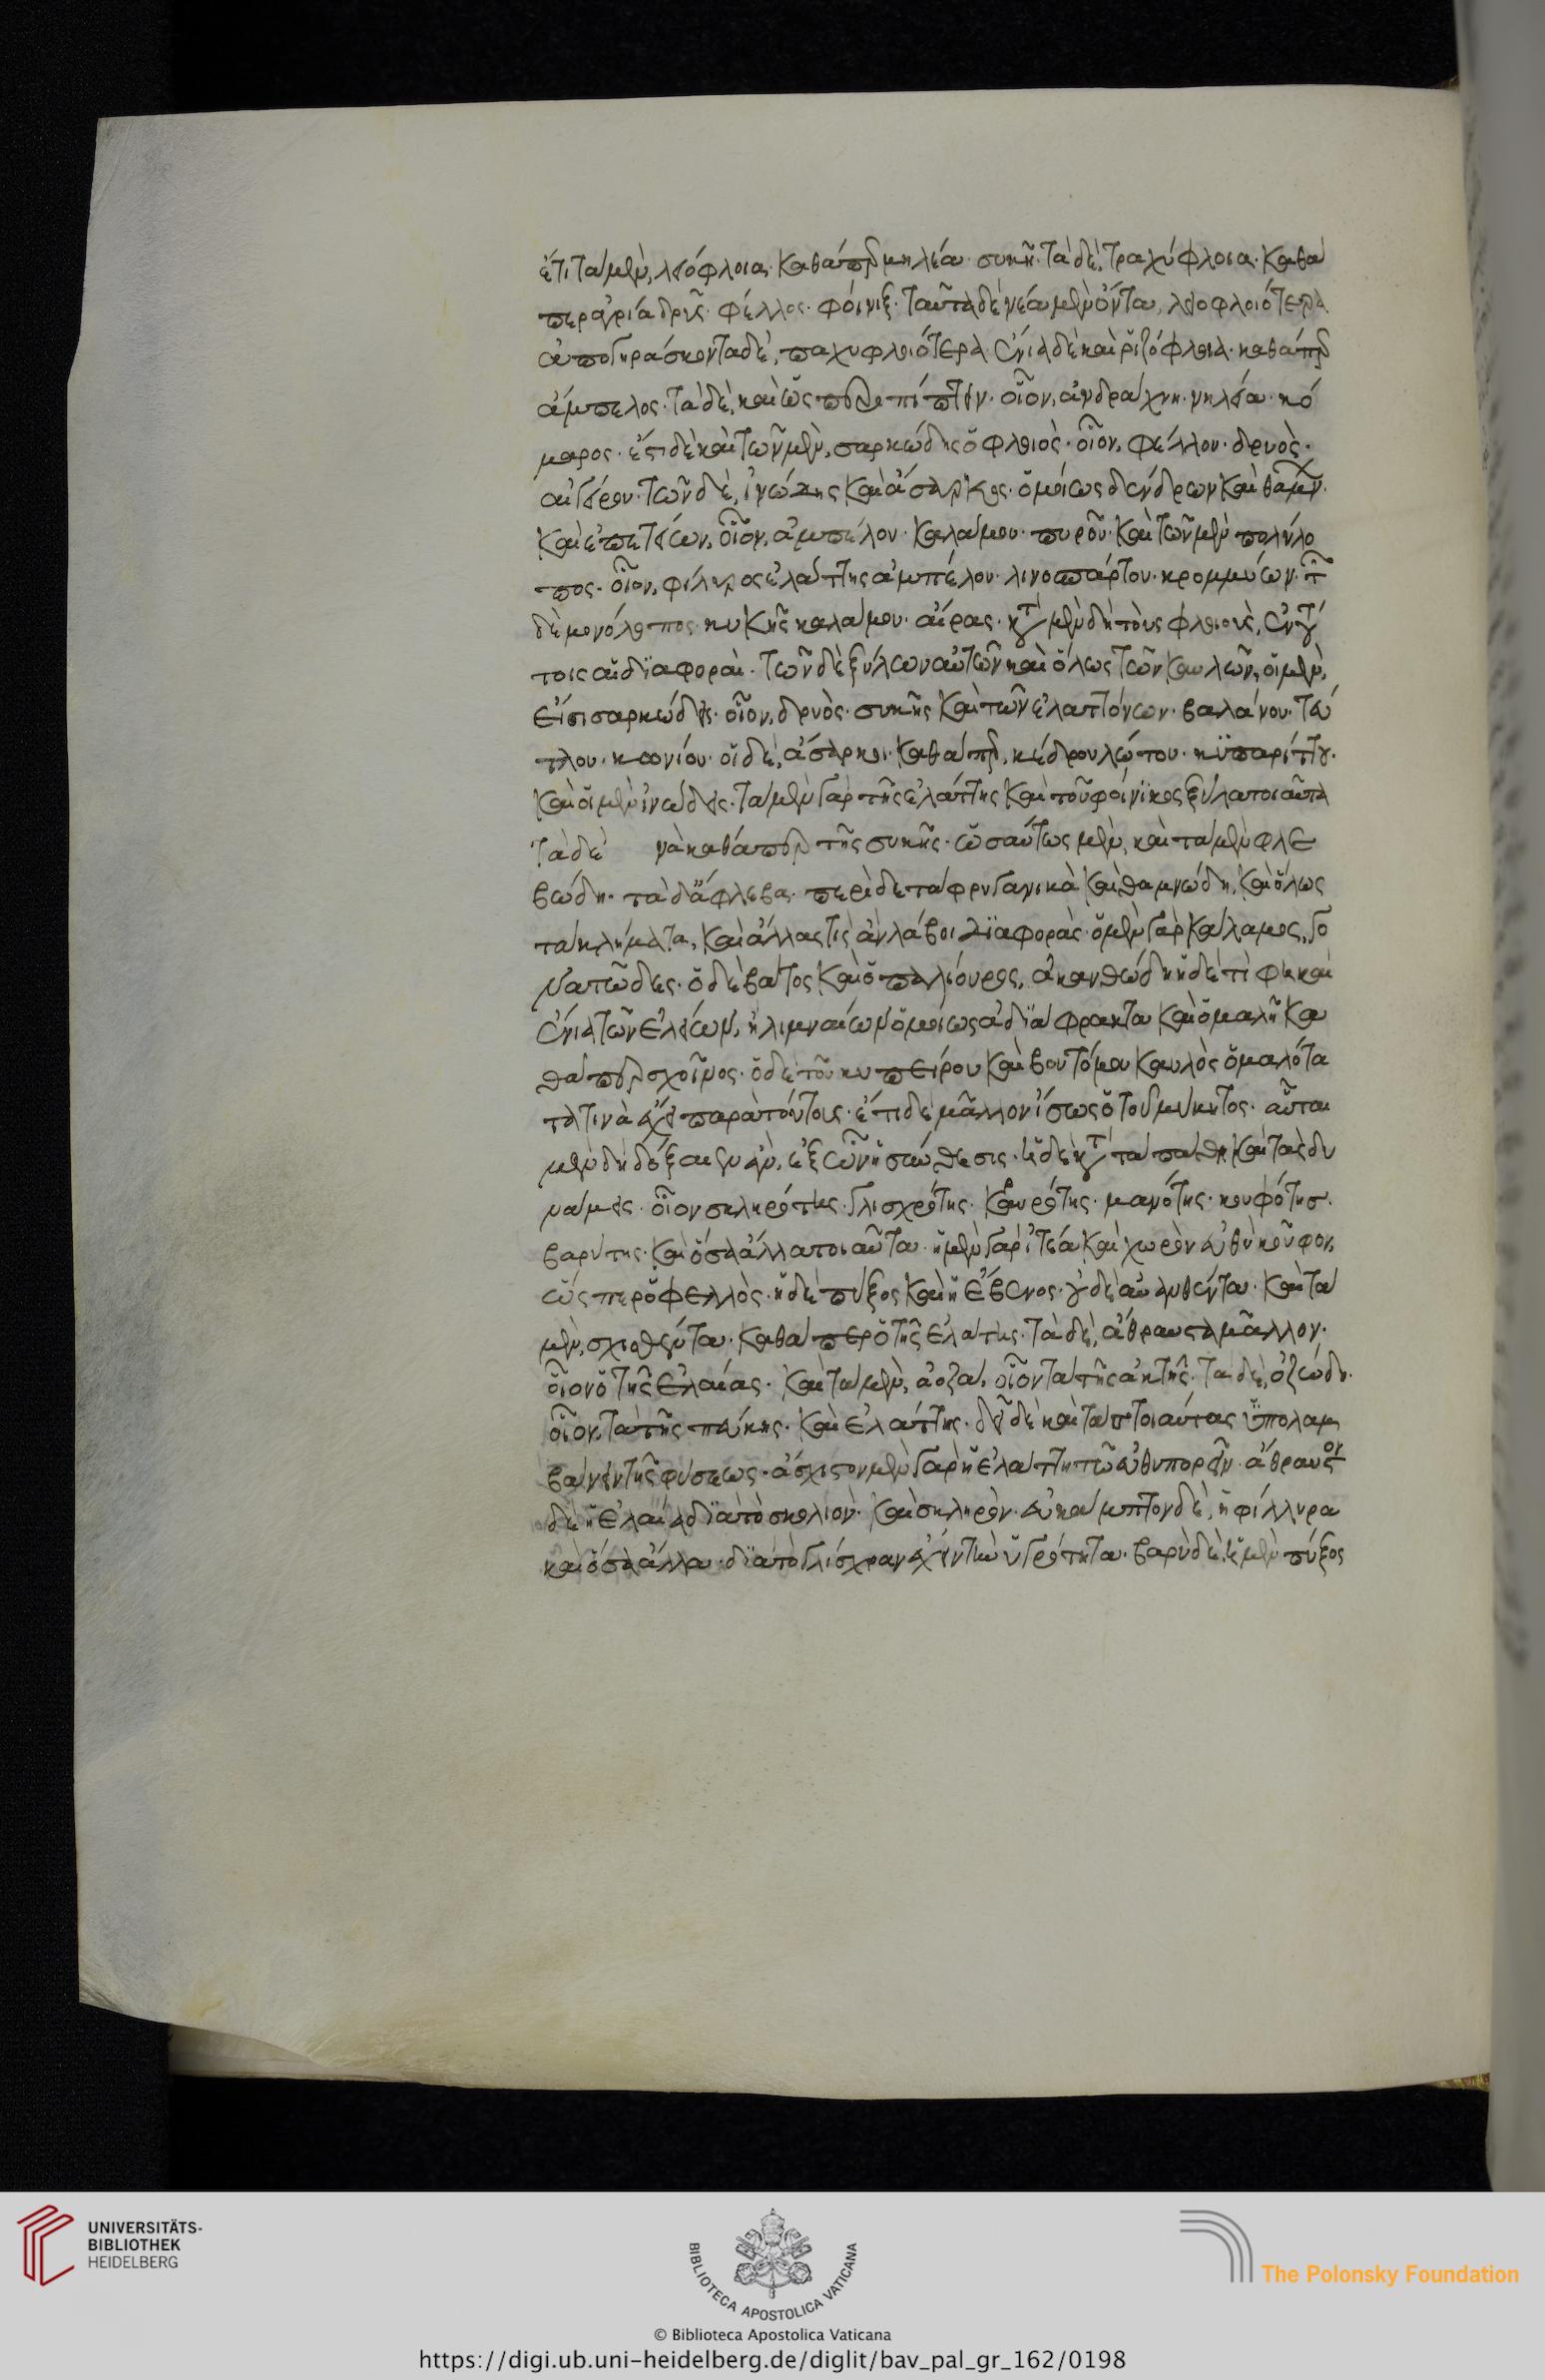 ἔτι τὰ μὲν, λειόφλοια. καθάπερ μηλέα. συκῆ. τὰ δὲ, τραχύφλοια. καθά
περ ἀγρία δρῦς. φέλλος. φοίνιξ. ταῦτα δὲ νέα μὲν ὄντα, λειοφλοιότερα
ἀπογηράσκοντα δὲ, παχυφλοιότερα. ἔνια δὲ καὶ ῥιζόφλοια. καθάπερ
ἄμπελος. τὰ δὲ, καὶ ὡς περιπίπτειν. οἷον, ἀνδράχνη. μηλέα. κό
μαρος. ἔστι δὲ καὶ τῶν μὲν, σαρκώδης ὁ φλοιὸς. οἷον, φέλλου. δρυὸς.
αἰγείρου. τῶν δὲ, ἰνώδης καὶ ἄσαρκος. ὁμοίως δένδρων καὶ θάμνων.
καὶ ἐπετείων, οἷον, ἀμπέλου. καλάμου. πυροῦ. καὶ τῶν μὲν πολύλο
πος. οἷον, φίλυρος ἐλάττης ἀμπέλου. λινοσπάρτου. κρομμύων. τῶν
δὲ μονόλοπος. συκῆς καλάμου. αἴρας. κατὰ μὲν δὴ τοὺς φλοιοὺς, ἐν τού
τοις αἱ διαφοραὶ. τῶν δὲ ξύλων αὐτῶν καὶ ὅλως τῶν καυλῶν, οἱ μὲν,
εἰσι σαρκώδεις. οἷον, δρυὸς. συκῆς καὶ τῶν ἐλαττόνων. βαλάνου. τεύ
τλου. κωνίου. οἱ δὲ, ἄσαρκοι. καθάπερ, κέδρου λώτου. κυπαρίττου.
καὶ οἱ μὲν ἰνώδεις. τὰ μὲν γὰρ τῆς ἐλάττης καὶ τοῦ φοίνικος ξύλα τοιαῦτα
τὰ δὲ να καθάπερ τῆς συκῆς. ὡσαύτως μὲν, καὶ τὰ μὲν φλε
βώδη. τὰ δ' ἄφλεβα. περὶ δὲ τὰ φρυγανικὰ καὶ θαμνώδη, καὶ ὅλως
τὰ κλήματα, καὶ ἄλλας τὶς ἂν λάβοι διαφορὰς. ὁ μὲν γὰρ κάλαμος, γο
νατῶδες. ὁ δὲ βάτος καὶ ὁ παλίουρος, ἀκανθώδη ἡ δὲ τίφη καὶ
ἔνια τῶν ἑλείων, ἢ λιμναίων ὁμοίως ἀδιάφρακτα καὶ ὁμαλῆ κα
θάπερ σχοῖνος. ὁ δὲ τοῦ κυπείρου καὶ βουτόμου καυλὸς ὁμαλότα
τά τινα ἔχει παρὰ τούτοις. ἔτι δὲ μᾶλλον ἴσως ὁ τοῦ μύκητος. αὗται
μὲν δὴ δόξαιεν ἂν, ἐξ ὧν ἡ σύνθεσις. αἱ δὲ κατὰ τὰ πάθη καὶ τὰς δυ
νάμεις. οἷον σκληρότης. γλισχρότης. καυρότης. μανότης. κουφότης.
βαρύτης. καὶ ὅσα ἄλλα τοιαῦτα. ἡ μὲν γὰρ ἰτέα καὶ χωρὸν εὐθὺ κοῦφον,
ὥσπερ ὁ φελλὸς. ἡ δὲ πύξος καὶ ἡ ἔβενος. οὐδὲ αὐανθέντα. καὶ τὰ
μὲν, σχισθέντα. καθάπερ ὁ τῆς ἐλάτης. τὰ δὲ, ἄθραυστα μᾶλλον.
οἷον ὁ τῆς ἐλαίας. καὶ τὰ μὲν, ἄοζα, οἷον τὰ τῆς ἀκτῆς. τὰ δὲ, ὀζώδη.
οἷον τὰ τῆς πεύκης. καὶ ἐλάττης. δεῖ δὲ καὶ τὰς τοιαύτας ὑπολαμ
βάνειν τῆς φύσεως. ἄσχιστον μὲν γὰρ ἡ ἐλάττη τῷ εὐθυπορεῖν. ἄθραυστον
δὲ ἡ ἐλαία διὰ τὸ σκολιὸν. καὶ σκληρὸν. εὔκαμπτον δὲ, ἡ φίλλυρα
καὶ ὅσα ἄλλα. διὰ τὸ γλίσχραν ἔχειν τὴν ὑγρότητα. βαρὺ δὲ, ἡ μὲν πύξος
UNIVERSITÄTS-
BIBLIOTHEK
HEIDELBERG
BIBLIOTECA APOSTOLICA VATICANA
The Polonsky Foundation
© Biblioteca Apostolica Vaticana
https://digi.ub.uni-heidelberg.de/diglit/bav_pal_gr_162/0198